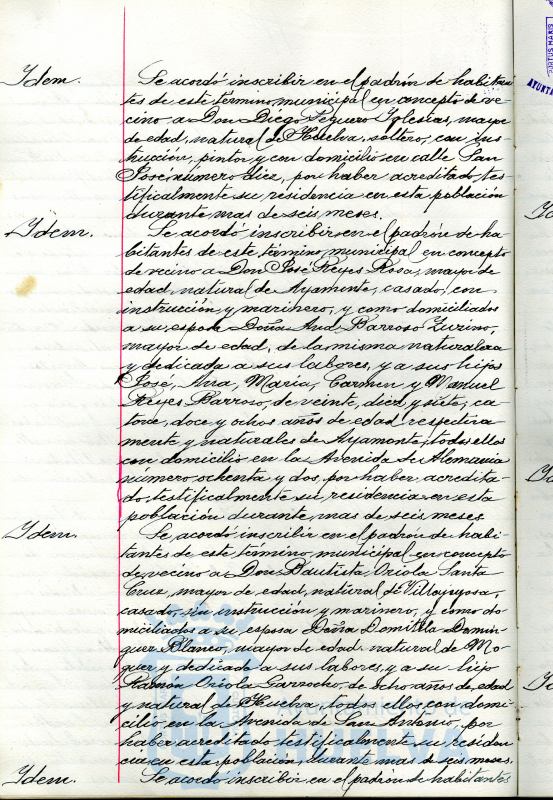 Idem.
Se acordó inscribir en el padrón de habitan
tes de este término municipal en concepto de ve-
cino a Don Diego Seguero Iglesias, mayor
de edad, natural de Huelva, soltero, con ins-
trucción, pintor y con domicilio en calle San
José número diez, por haber acreditado tes-
tificalmente su residencia en esta población
durante mas de seis meses.
Idem.
Se acordó inscribir en el padrón de ha-
bitantes de este término municipal en concepto
de vecino a Don José Reyes Rosa, mayor de
edad, natural de Ayamonte, casado, con
instrucción y marinero, y como domiciliados
a su esposa Doña Barroso
mayor de edad, de la misma naturaleza
y dedicada a sus labores, y a sus hijos
José, Ana, María, Carmen y Manuel
Reyes Barroso, de veinte, diez y siete, ca-
torce, doce y ochos años de edad respectiva
mente y naturales de Ayamonte, todos ellos
con domicilio en la Avenida de Alemania
número ochenta y dos, por haber acredita-
do testificalmente su residencia en esta
población durante mas de seis meses
Idem.
Se acordó inscribir en el padrón de habi-
tantes de este término municipal en concepto
de vecino a Don Bautista Oriola Santa
Cruz, mayor de edad, natural de Villajoyosa,
casado, sin instrucción y marinero, y como do
miciliados a su esposa Doña Domitila Domin-
guez Blanco, mayor de edad, natural de Mo-
guer y dedicada a sus labores, y a su hijo
Ramón Oriola Garrocho, de ocho años de edad
y natural de Huelva, todos ellos con domi-
cilio en la Avenida de San Antonio, por
haber acreditado testificalmente su residen
cia en esta población, durante mas de seis meses.
Idem.
Se acordó inscribir en el padrón de habitantes
PORTUS MARIS
AYUNTA